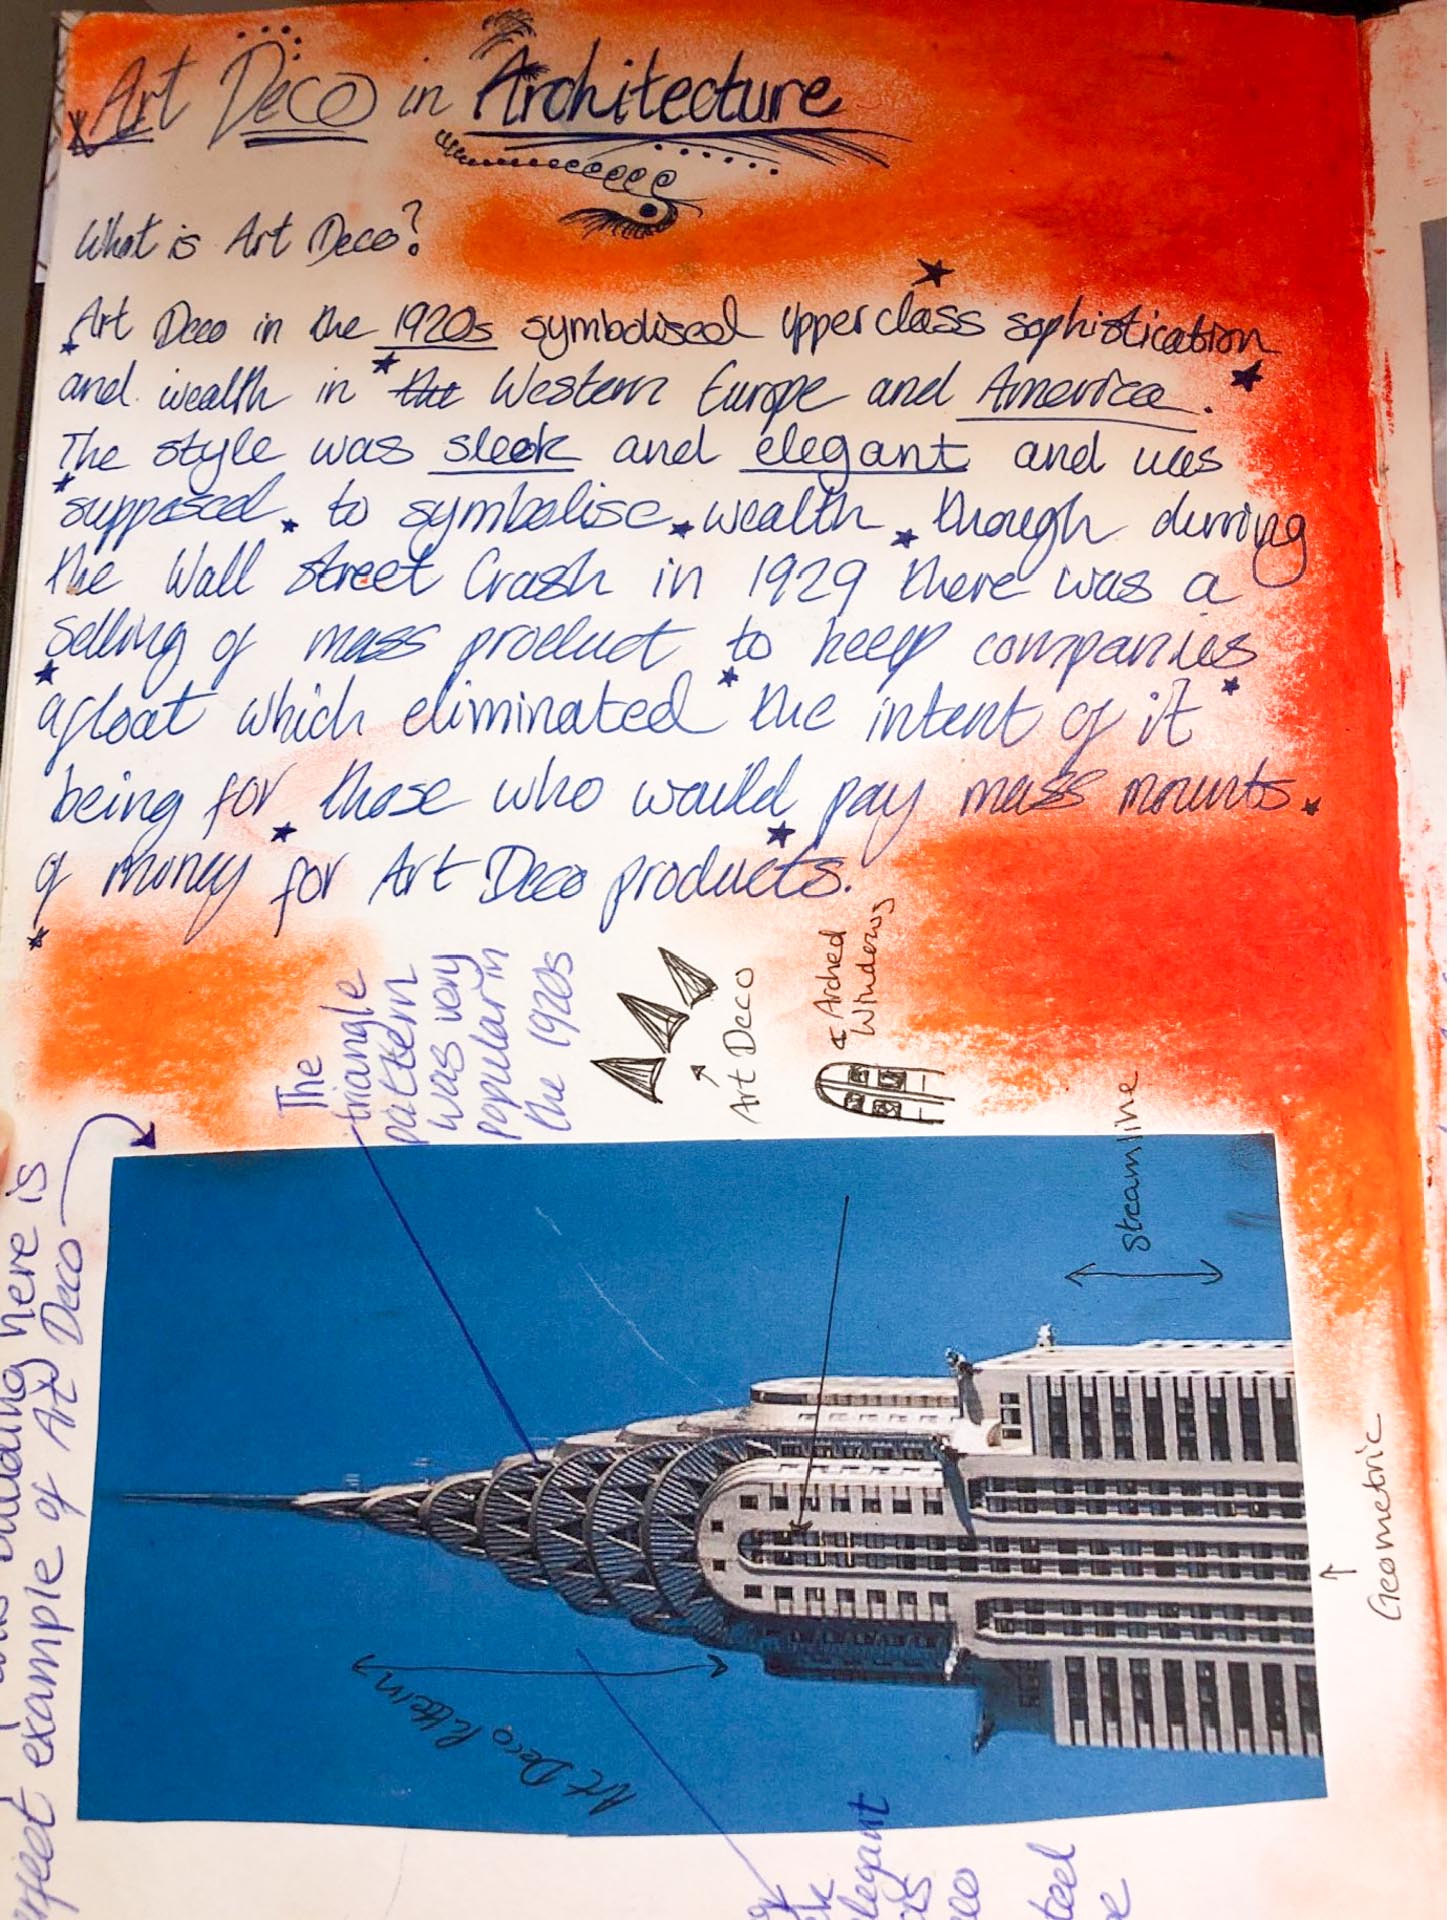 Art Deco in Architecture
What is Art Deco?
Art Deco in the 1920s symbolised upper class sophistication
and wealth in the Western Europe and America.
The style was sleek and elegant and was
supposed to symbolise wealth though durring
the Wall street Crash in 1929 there was a
selling of mass product to keep companies
afloat which eliminated the intent of it
being for those who would pay mass mounts
of money for Art Deco products.
The
triangle
pattern
was very
popular in
the 1920s
Art Deco
Arched
Windows
Streamline
Geometric
Art Deco Pattern
building here is
example of Art
Deco
elegant